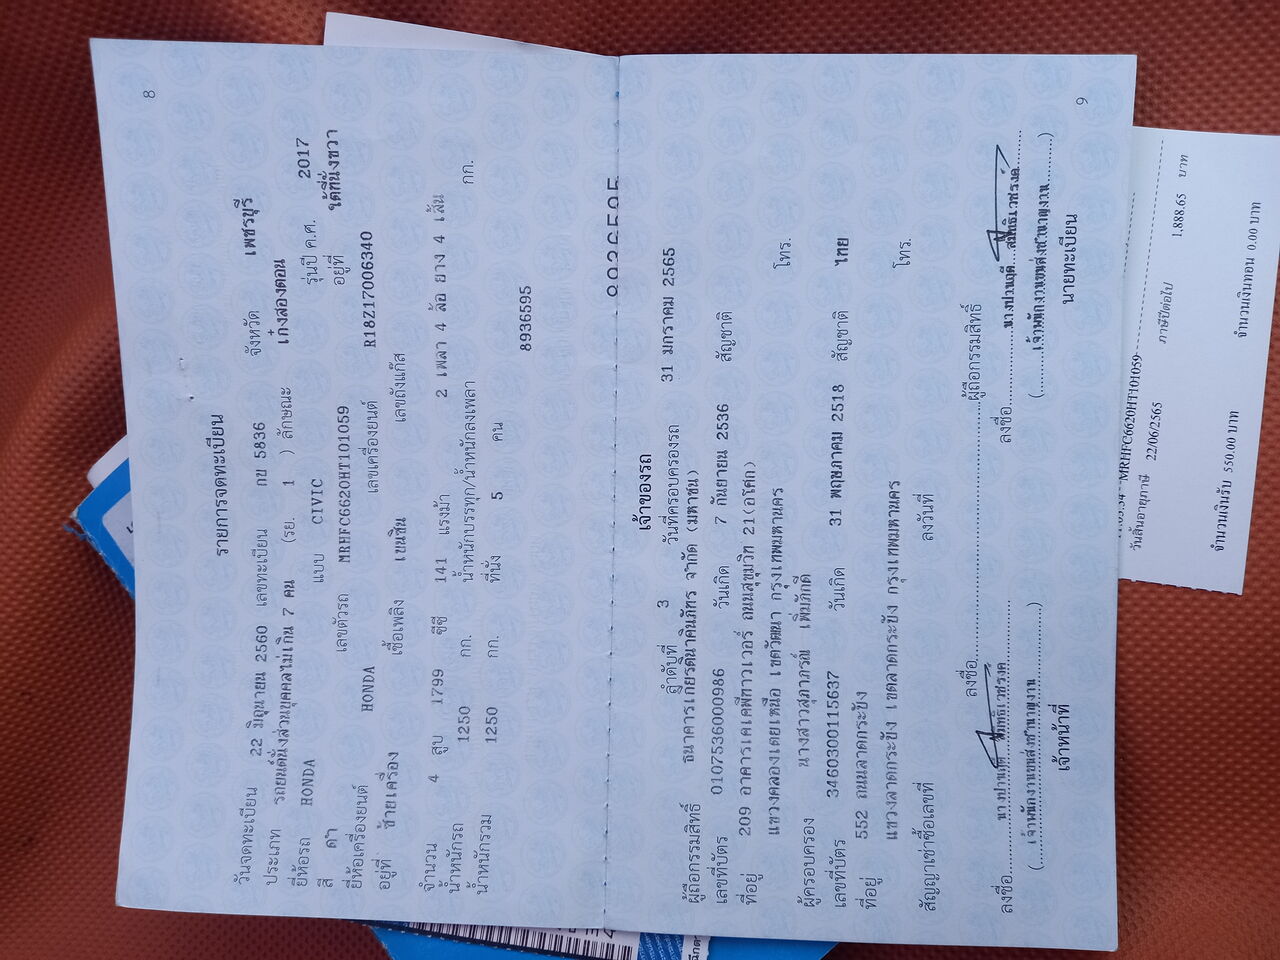 8
รายการจดทะเบียน
วันจดทะเบียน 22 มิถุนายน 2560 เลขทะเบียน กข 5836 จังหวัด เพชรบุรี
ประเภท รถยนต์นั่งส่วนบุคคลไม่เกิน 7 คน (รย. 1 ) ลักษณะ เก๋งสองตอน
ยี่ห้อรถ HONDA แบบ CIVIC รุ่นปี ค.ศ. 2017
สี ดำ เลขตัวรถ MRHFC6620HT101059 อยู่ที่ ใต้ที่นั่งขวา
ยี่ห้อเครื่องยนต์ HONDA เลขเครื่องยนต์ R18Z17006340
อยู่ที่ ซ้ายเครื่อง เชื้อเพลิง เบนซิน เลขถังแก๊ส
จำนวน 4 สูบ 1799 ซีซี 141 แรงม้า 2 เพลา 4 ล้อ ยาง 4 เส้น
น้ำหนักรถ 1250 กก. น้ำหนักบรรทุก/น้ำหนักลงเพลา กก.
น้ำหนักรวม 1250 กก. ที่นั่ง 5 คน
8936595
เจ้าของรถ
ลำดับที่ 3 วันที่ครอบครองรถ 31 มกราคม 2565
ผู้ถือกรรมสิทธิ์ ธนาคารเกียรตินาคินภัทร จำกัด (มหาชน)
เลขที่บัตร 0107536000986 วันเกิด 7 กันยายน 2536 สัญชาติ
ที่อยู่ 209 อาคารเคเคพีทาวเวอร์ ถนนสุขุมวิท 21(อโศก)
แขวงคลองเตยเหนือ เขตวัฒนา กรุงเทพมหานคร โทร.
ผู้ครอบครอง นางสาวสุภาภรณ์ เพิ่มภักดี
เลขที่บัตร 3460300115637 วันเกิด 31 พฤษภาคม 2518 สัญชาติ ไทย
ที่อยู่ 552 ถนนลาดกระบัง
แขวงลาดกระบัง เขตลาดกระบัง กรุงเทพมหานคร โทร.
สัญญาเช่าซื้อเลขที่ ลงวันที่
ลงชื่อ ผู้ถือกรรมสิทธิ์
ลงชื่อ ลงชื่อ
(เจ้าพนักงานขนส่งชำนาญงาน) (เจ้าพนักงานขนส่งชำนาญงาน)
เจ้าหน้าที่ นายทะเบียน
9
MRHFC6620HT101059
วันสิ้นอายุภาษี 22/06/2565 ภาษีปีต่อไป 1,888.65 บาท
จำนวนเงินรับ 550.00 บาท จำนวนเงินทอน 0.00 บาท